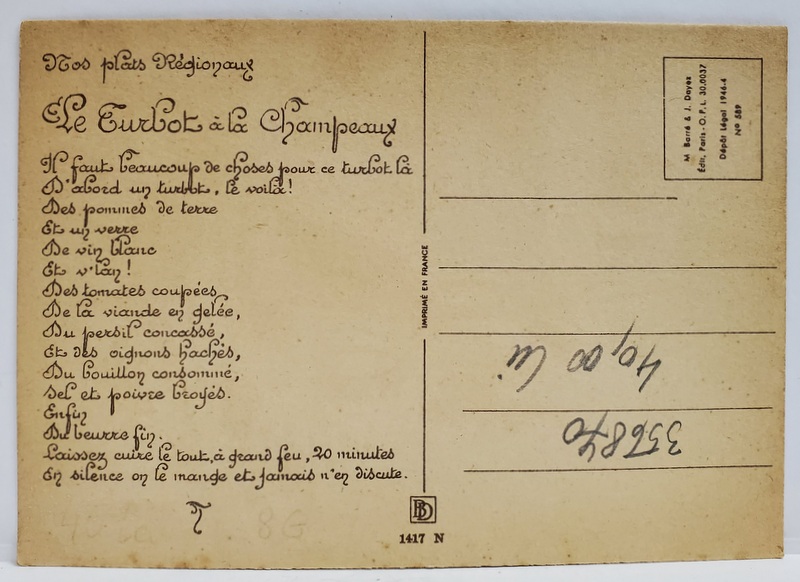 Nos plats Régionaux
Le Turbot à la Champeaux
Il faut beaucoup de choses pour ce turbot là
D'abord un turbot, le voilà!
Des pommes de terre
Et un verre
De vin blanc
Et v'lan!
Des tomates coupées,
De la viande en gelée,
Du persil concassé,
Et des oignons hachés,
Du bouillon consommé,
Sel et poivre broyés.
Enfin
Du beurre fin.
Laissez cuire le tout, à grand feu, 20 minutes
En silence on le mange et jamais n'en discute.
T
IMPRIMÉ EN FRANCE
BD
1417 N
M. Barré & J. Dayez
Édit. Paris - O.P.L. 30.0037
Dépôt Légal 1946-4
N° 589
356840
40,00 lei